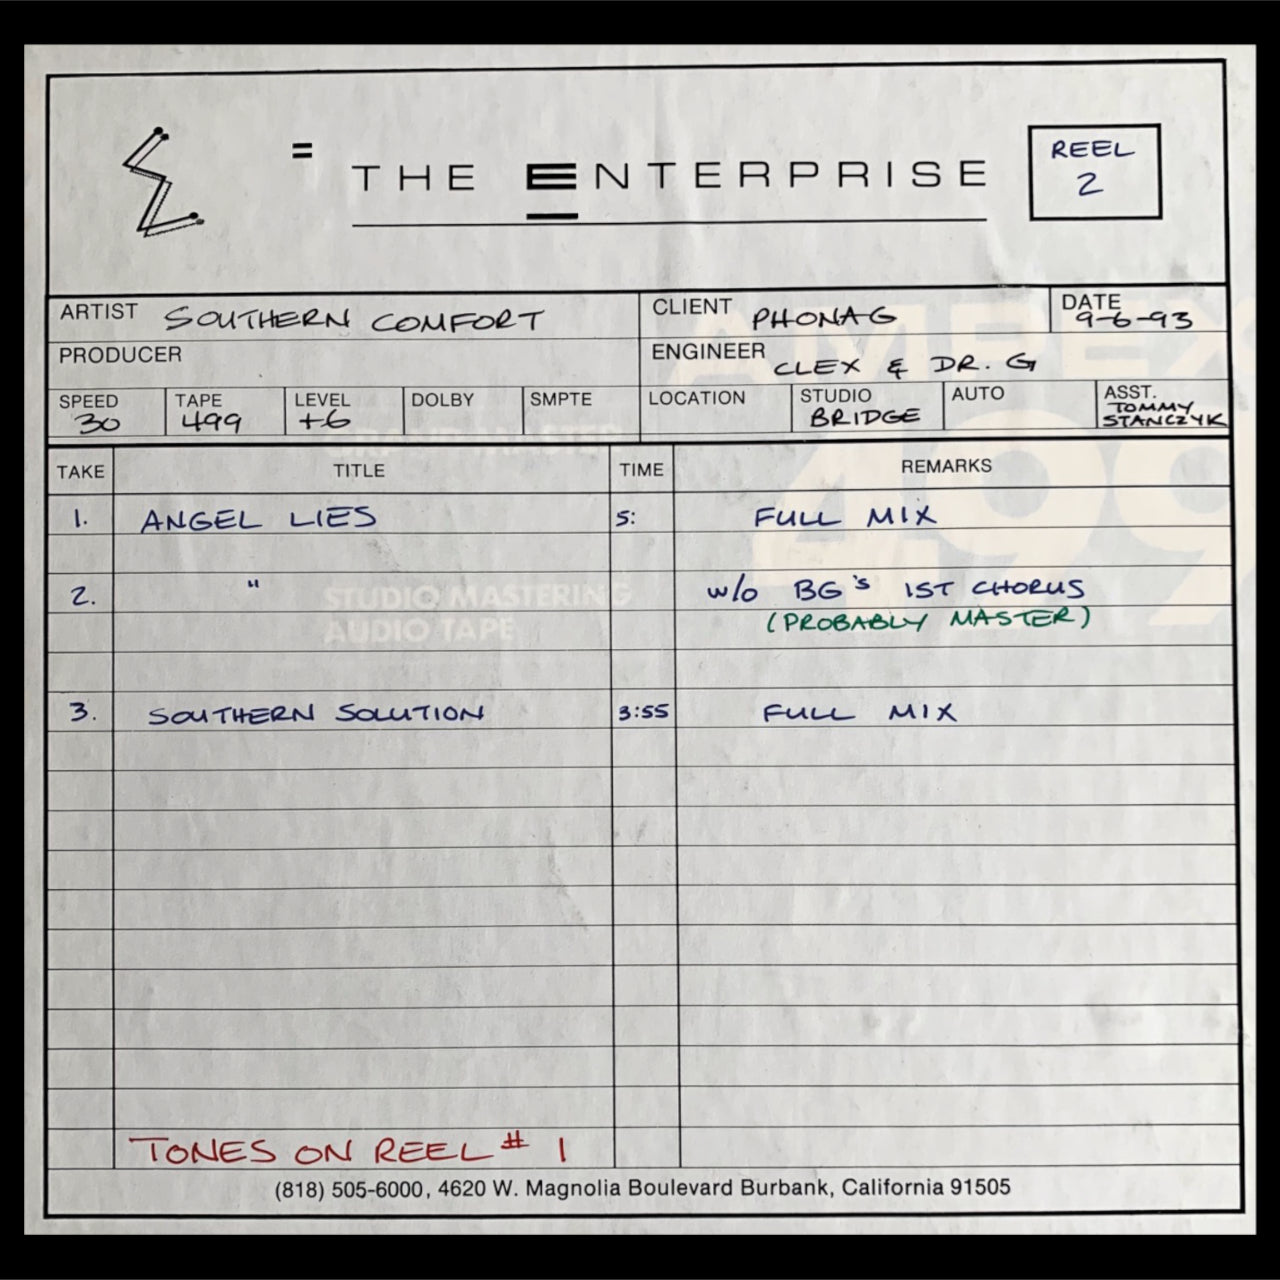 = THE ENTERPRISE
REEL
2
ARTIST SOUTHERN COMFORT
CLIENT PHONAG
DATE 9-6-93
PRODUCER
ENGINEER CLEX & DR. G
SPEED 30
TAPE 499
LEVEL +6
DOLBY
SMPTE
LOCATION
STUDIO BRIDGE
AUTO
ASST. TOMMY
STANCZYK
TAKE TITLE TIME REMARKS
1. ANGEL LIES 5: FULL MIX
2. " w/o BG's 1ST CHORUS
(PROBABLY MASTER)
3. SOUTHERN SOLUTION 3:55 FULL MIX
TONES ON REEL # 1
(818) 505-6000, 4620 W. Magnolia Boulevard Burbank, California 91505
AMPEX
GRAND MASTER
499
STUDIO MASTERING
AUDIO TAPE